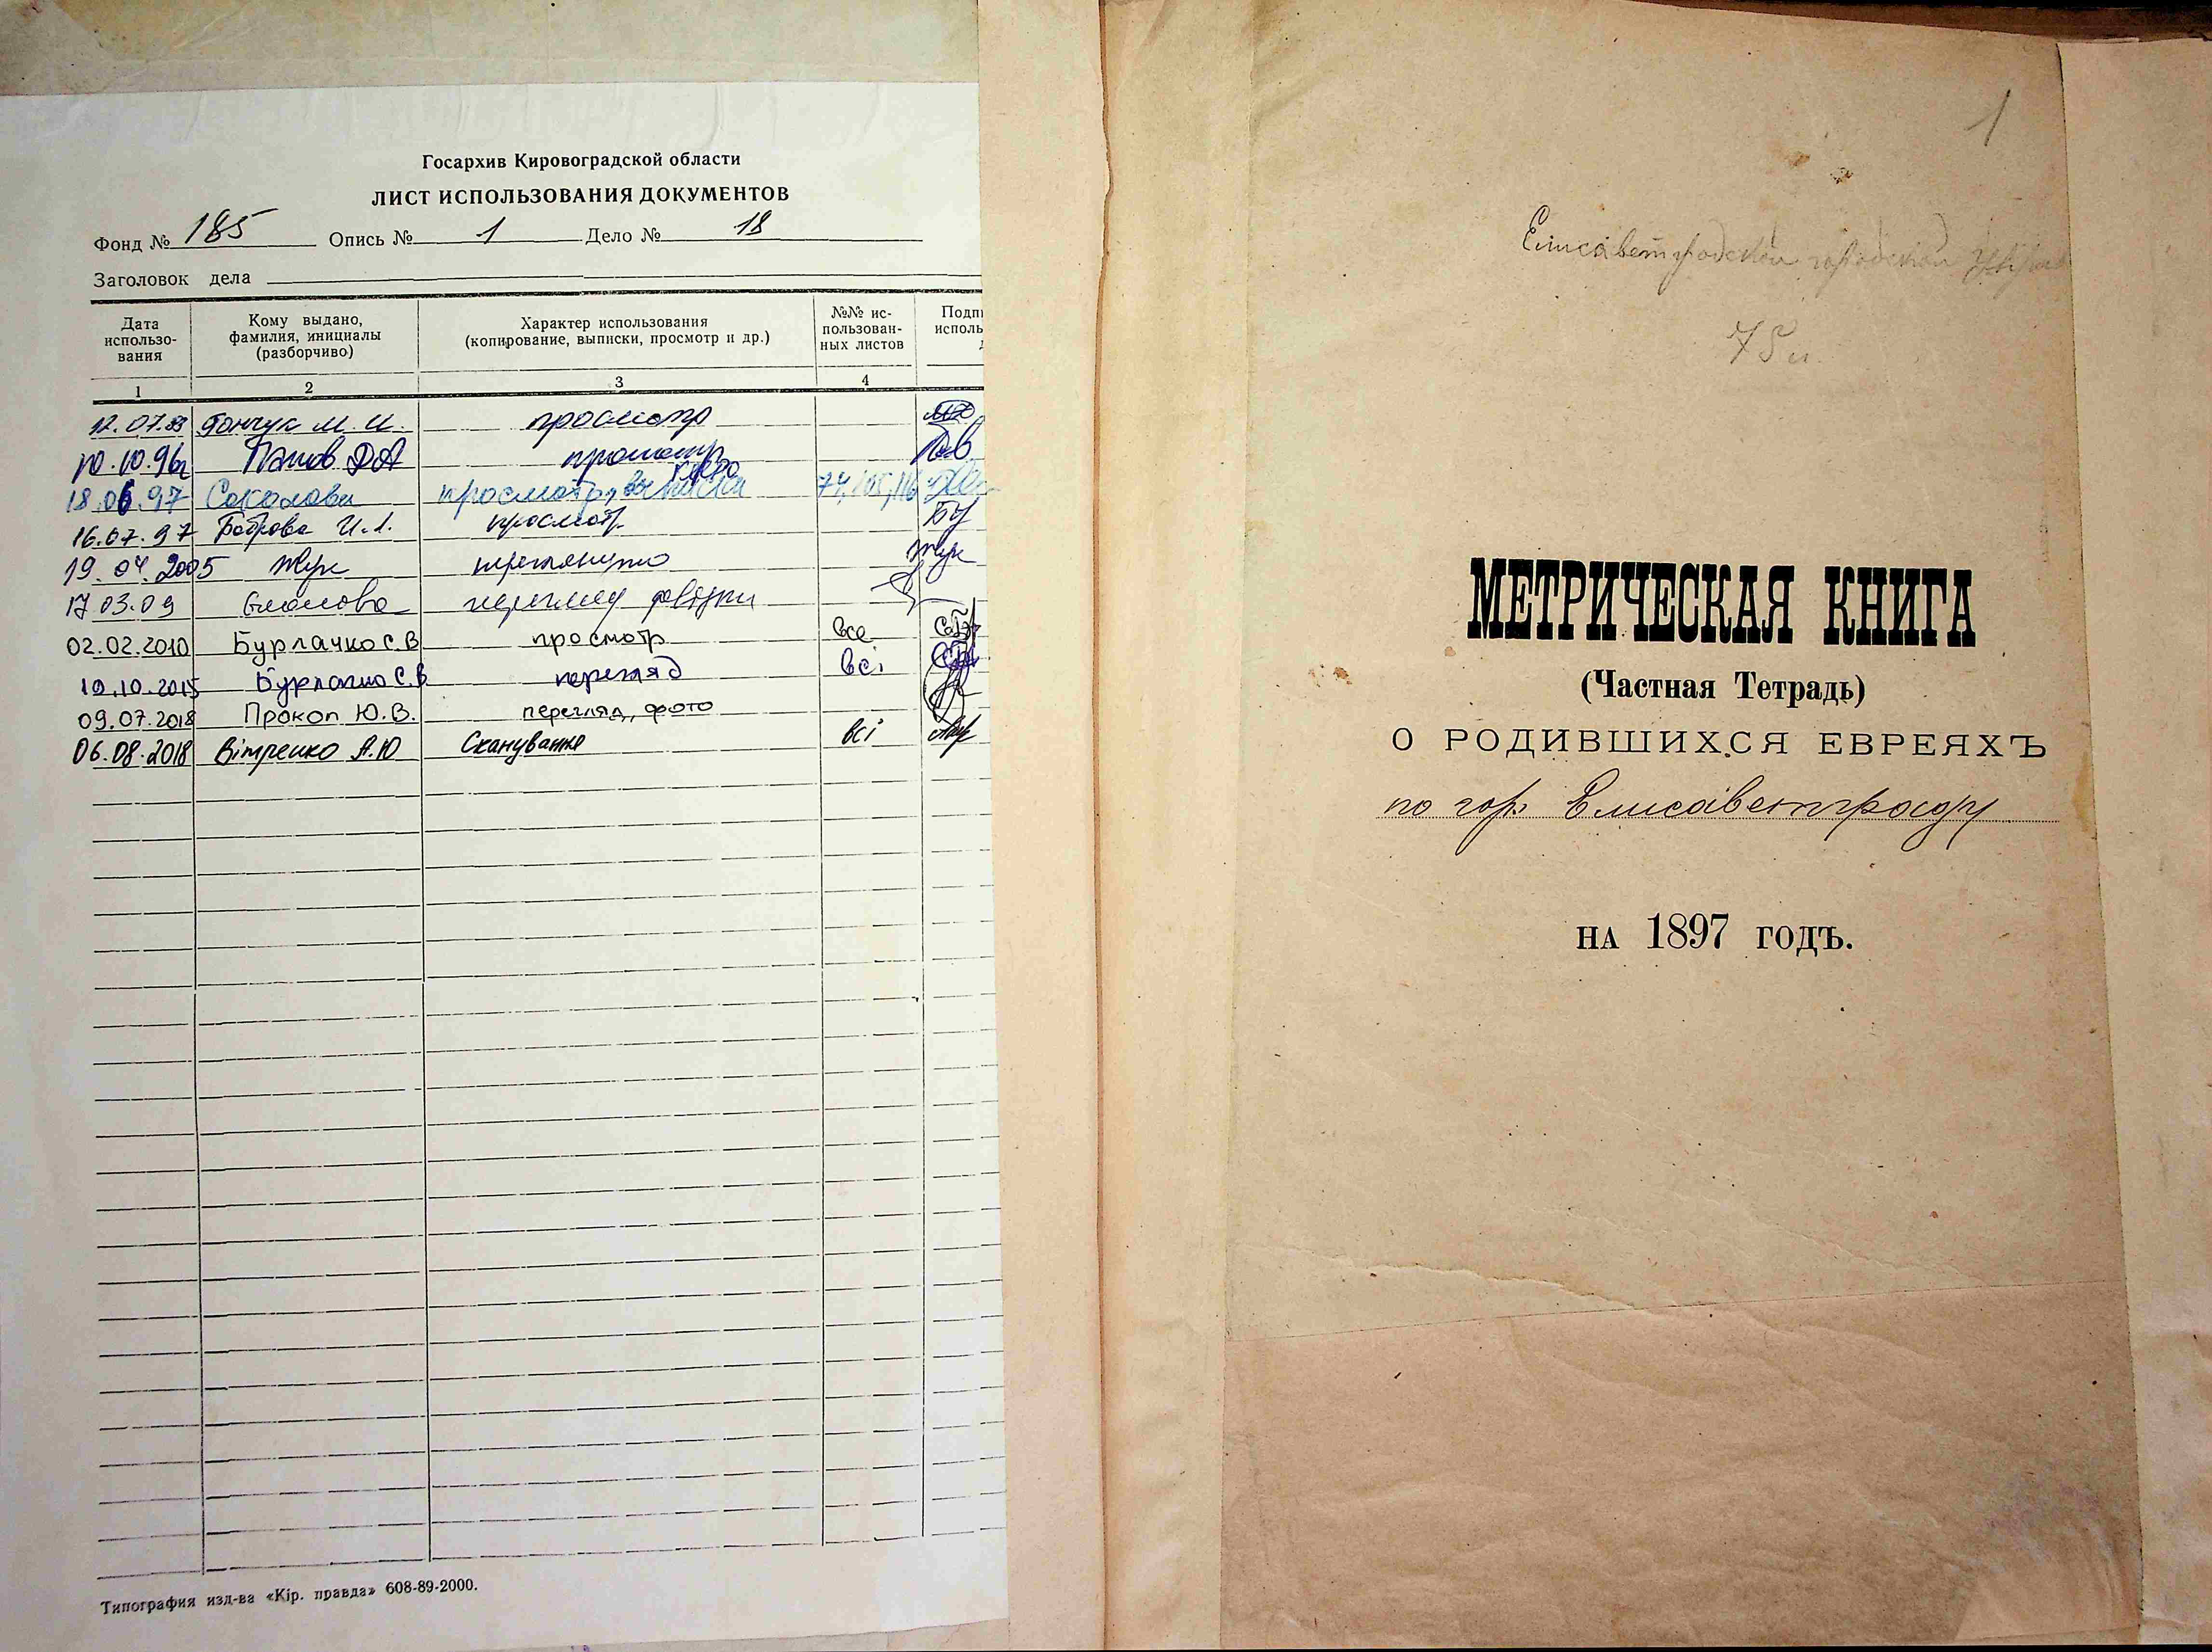 Госархив Кировоградской области
ЛИСТ ИСПОЛЬЗОВАНИЯ ДОКУМЕНТОВ
Фонд № 185 Опись № 1 Дело № 18
Заголовок дела
Дата использо-вания
Кому выдано, фамилия, инициалы (разборчиво)
Характер использования (копирование, выписки, просмотр и др.)
№№ ис-пользован-ных листов
Подп исполь
1 2 3 4
12.07. М. И. просмотр
10.10.96г Попов просмотр
18.06.97 Соколова просмотр, выписки
16.07.97 Боброва И. просмотр
19.04.2005 Жук переглянуто Жук
17.03.09 перегляд довідки
02.02.2010 Бурлачко С.В просмотр все
19.10.2015 Бурлачко С.В перегляд всі
09.07.2018 Прокоп Ю.В. перегляд, фото
06.08.2018 Вітренко А.Ю Сканування всі
Типография изд-ва «Кір. правда» 608-89-2000.
1
Елисаветградской городской
75
МЕТРИЧЕСКАЯ КНИГА
(Частная Тетрадь)
О РОДИВШИХСЯ ЕВРЕЯХЪ
по гор. Елисаветграду
НА 1897 ГОДЪ.